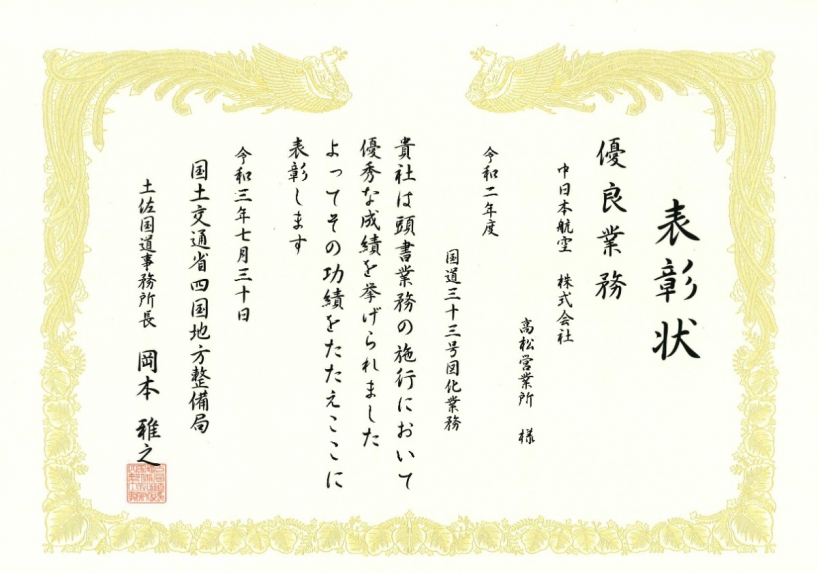 表彰状
優良業務
中日本航空 株式会社
高松営業所 様
令和二年度
国道三十三号図化業務
貴社は頭書業務の施行において
優秀な成績を挙げられました
よってその功績をたたえここに
表彰します
令和三年七月三十日
国土交通省四国地方整備局
土佐国道事務所長 岡本 雅之